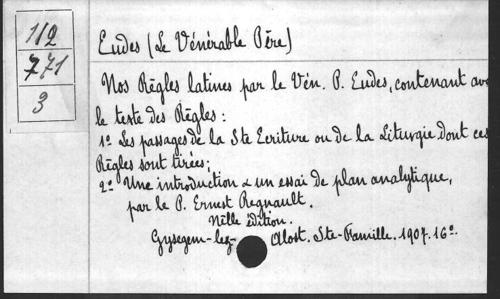 112
771
3
Eudes (Le Vénérable Père)
Nos Règles latines par le Vén. P. Eudes, contenant av
le texte des Règles :
1º Les passages de la Ste Ecriture ou de la Liturgie dont ces
Règles sont tirées;
2º Une introduction & un essai de plan analytique,
par le P. Ernest Regnault.
Nlle édition.
Gysegem-lez- Alost. Ste-Famille. 1907. 16º.